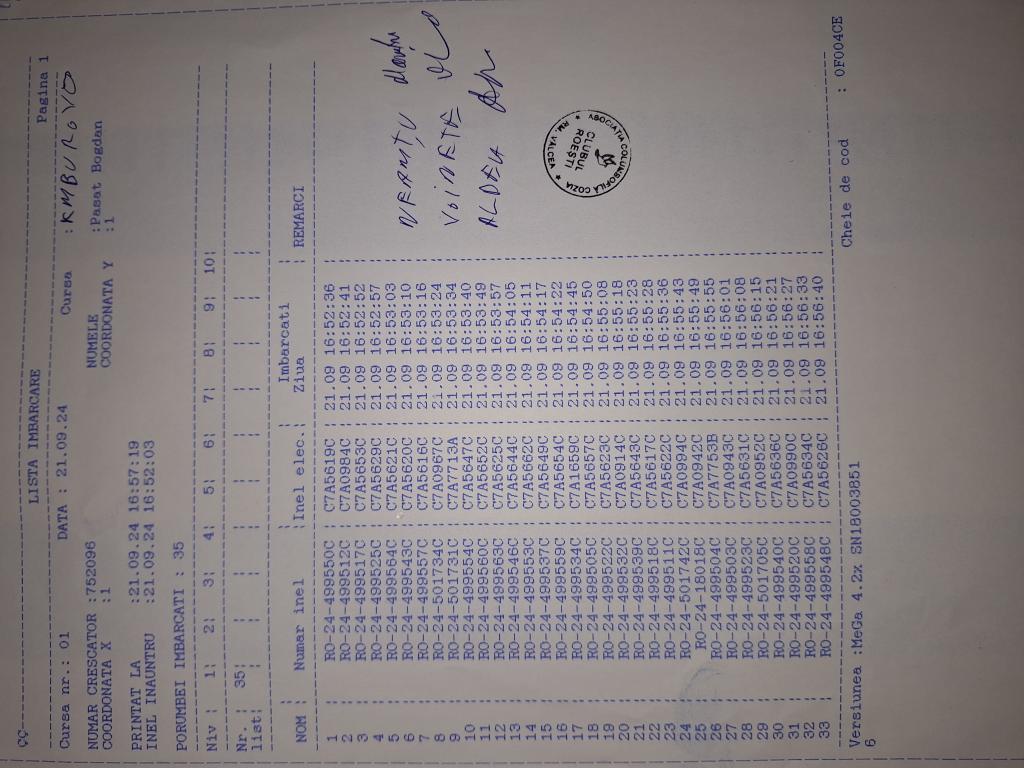 ÇÇ
LISTA IMBARCARE Pagina 1
Cursa nr.: 01 DATA : 21.09.24 Cursa : KMBUROVO
NUMAR CRESCATOR :752096 NUMELE :Pasat Bogdan
COORDONATA X :1 COORDONATA Y :1
PRINTAT LA :21.09.24 16:57:19
INEL INAUNTRU :21.09.24 16:52:03
PORUMBEI IMBARCATI : 35
Niv : 1: 2: 3: 4: 5: 6: 7: 8: 9: 10:
Nr. : 35:
list:
NOM : Numar inel : Inel elec.: Imbarcati Ziua : REMARCI
1 : RO-24-499550C : C7A5619C : 21.09 16:52:36 :
2 : RO-24-499512C : C7A0984C : 21.09 16:52:41 :
3 : RO-24-499517C : C7A5653C : 21.09 16:52:52 :
4 : RO-24-499525C : C7A5629C : 21.09 16:52:57 :
5 : RO-24-499564C : C7A5621C : 21.09 16:53:03 :
6 : RO-24-499543C : C7A5620C : 21.09 16:53:10 :
7 : RO-24-499557C : C7A5616C : 21.09 16:53:16 :
8 : RO-24-501734C : C7A0967C : 21.09 16:53:24 :
9 : RO-24-501731C : C7A7713A : 21.09 16:53:34 :
10 : RO-24-499554C : C7A5647C : 21.09 16:53:40 :
11 : RO-24-499560C : C7A5652C : 21.09 16:53:49 :
12 : RO-24-499563C : C7A5625C : 21.09 16:53:57 :
13 : RO-24-499546C : C7A5644C : 21.09 16:54:05 :
14 : RO-24-499553C : C7A5662C : 21.09 16:54:11 :
15 : RO-24-499537C : C7A5649C : 21.09 16:54:17 :
16 : RO-24-499559C : C7A5654C : 21.09 16:54:22 :
17 : RO-24-499534C : C7A1659C : 21.09 16:54:45 :
18 : RO-24-499505C : C7A5657C : 21.09 16:54:50 :
19 : RO-24-499522C : C7A5623C : 21.09 16:55:08 :
20 : RO-24-499532C : C7A0914C : 21.09 16:55:18 :
21 : RO-24-499539C : C7A5643C : 21.09 16:55:23 :
22 : RO-24-499518C : C7A5617C : 21.09 16:55:28 :
23 : RO-24-499511C : C7A5622C : 21.09 16:55:36 :
24 : RO-24-501742C : C7A0994C : 21.09 16:55:43 :
25 : RO-24-18018C : C7A0942C : 21.09 16:55:49 :
26 : RO-24-499504C : C7A7753B : 21.09 16:55:55 :
27 : RO-24-499503C : C7A0943C : 21.09 16:56:01 :
28 : RO-24-499523C : C7A5631C : 21.09 16:56:08 :
29 : RO-24-501705C : C7A0952C : 21.09 16:56:15 :
30 : RO-24-499540C : C7A5636C : 21.09 16:56:21 :
31 : RO-24-499520C : C7A0990C : 21.09 16:56:27 :
32 : RO-24-499558C : C7A5634C : 21.09 16:56:33 :
33 : RO-24-499548C : C7A5626C : 21.09 16:56:40 :
NEAMTU
VOINETE
ALDEA
ASOCIATIA COLUMBOFILA COZIA
* RM. VALCEA *
CLUBUL
ROESTI
Versiunea :MeGa 4.2x SN18003851 Cheie de cod : OF004CE
6